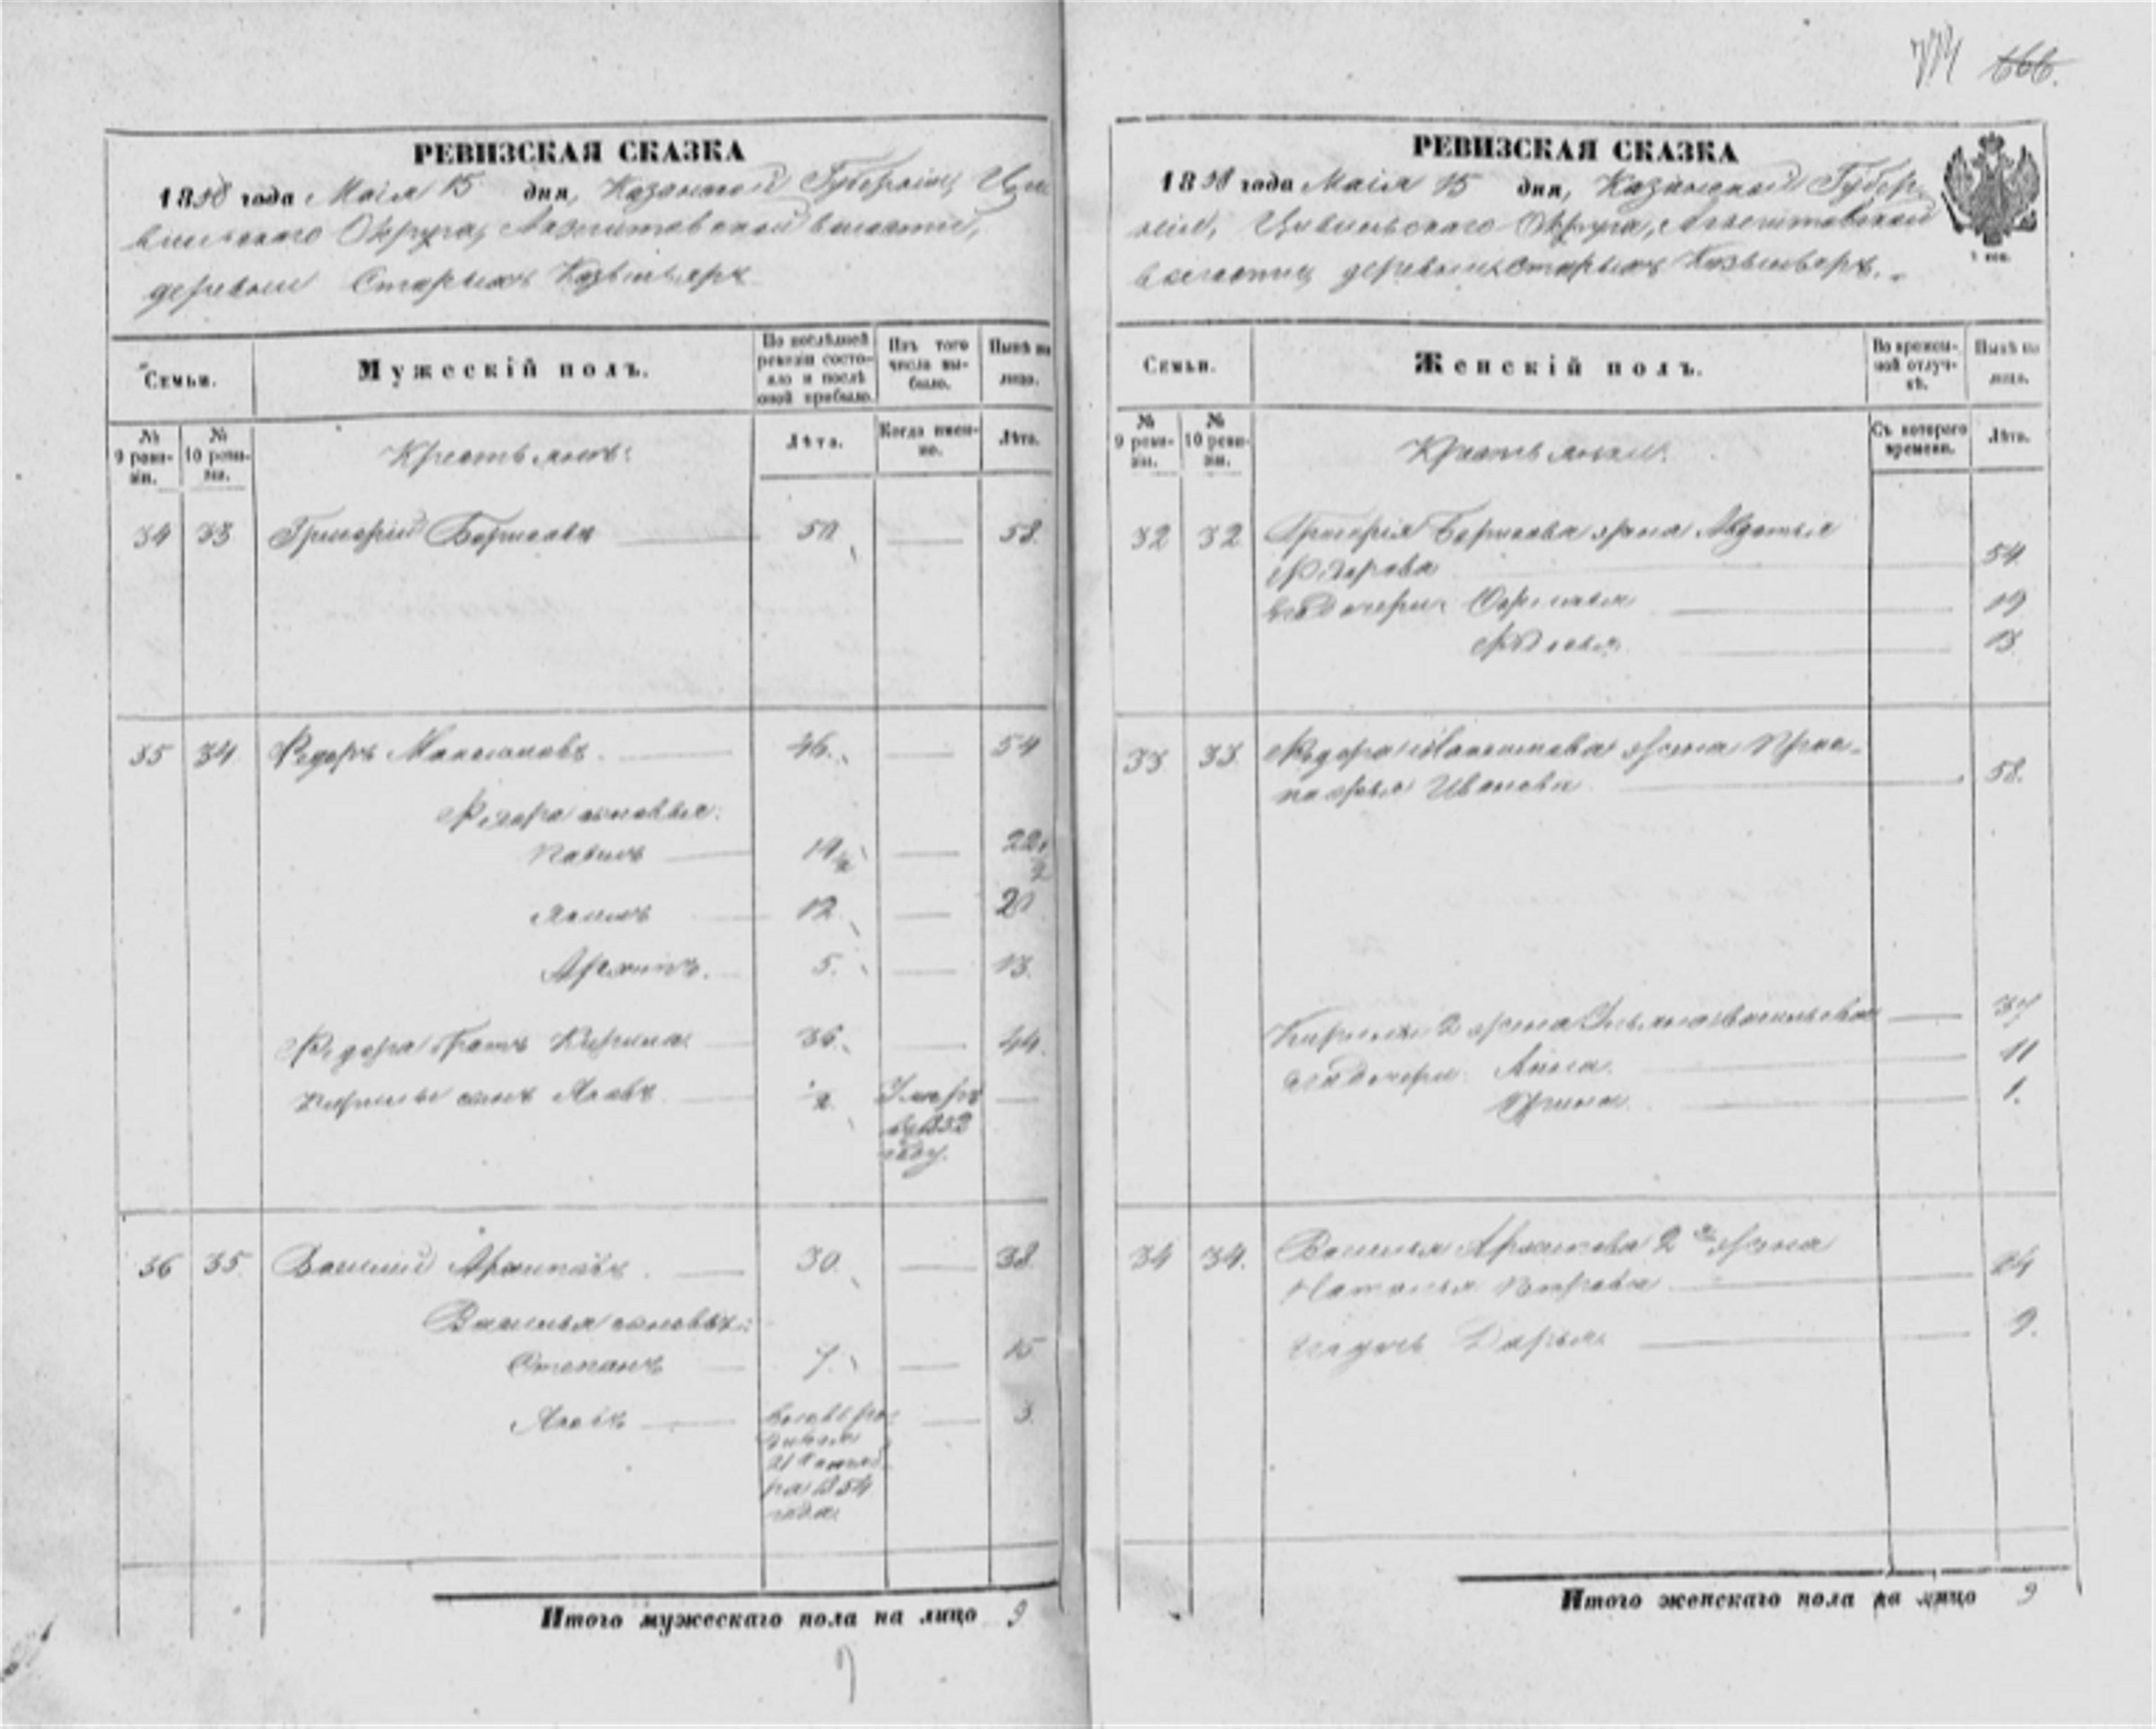 РЕВИЗСКАЯ СКАЗКА
1858 года Маія 15 дня, Казанской Губерніи, Циви
вильскаго Округа, волости,
деревни Старыхъ
Семьи.
Мужескій полъ.
По послѣдней ревизіи состояло и послѣ оной прибыло.
Изъ того числа выбыло.
Нынѣ на лицо.
№ 9 ревизіи.
№ 10 ревизіи.
Крестьянъ:
Лѣта.
Когда именно.
Лѣта.
34 33 Григорій Борисовъ 50 58.
35 34 Федоръ Максимовъ. 46. 54
Федора сыновья:
Павелъ 14½ 22½
Якимъ 12 20
Архипъ. 5. 13.
Федора братъ Кирила 36. 44.
Кирилы сынъ Яковъ 2. Умеръ
въ 1852
году.
36 35 Василій Архиповъ. 30. 38.
Василья сыновья:
Степанъ 7. 15
Яковъ 3.
1854
года
Итого мужескаго пола на лицо 9
714 666.
РЕВИЗСКАЯ СКАЗКА
1858 года Маія 15 дня, Казанской Губер
ніи, Цивильскаго Округа,
волости, деревни Старыхъ
Семьи.
Женскій полъ.
Во временной отлучкѣ.
Нынѣ на лицо.
№ 9 ревизіи.
№ 10 ревизіи.
Крестьянъ.
Съ котораго времени.
Лѣта.
32 32 Григорья Борисова жена Авдотья
Федорова 54.
его дочери: 19
13
33 33 Федора Максимова жена Прас-
ковья Иванова 58.
Кирилы 2 жена Ульяна Васильева 37
его дочери: Анна. 11
Ирина. 1.
34 34. Василья Архипова 2ая жена
Наталья Петрова 24
его дочь Дарья 9.
Итого женскаго пола на лицо 9